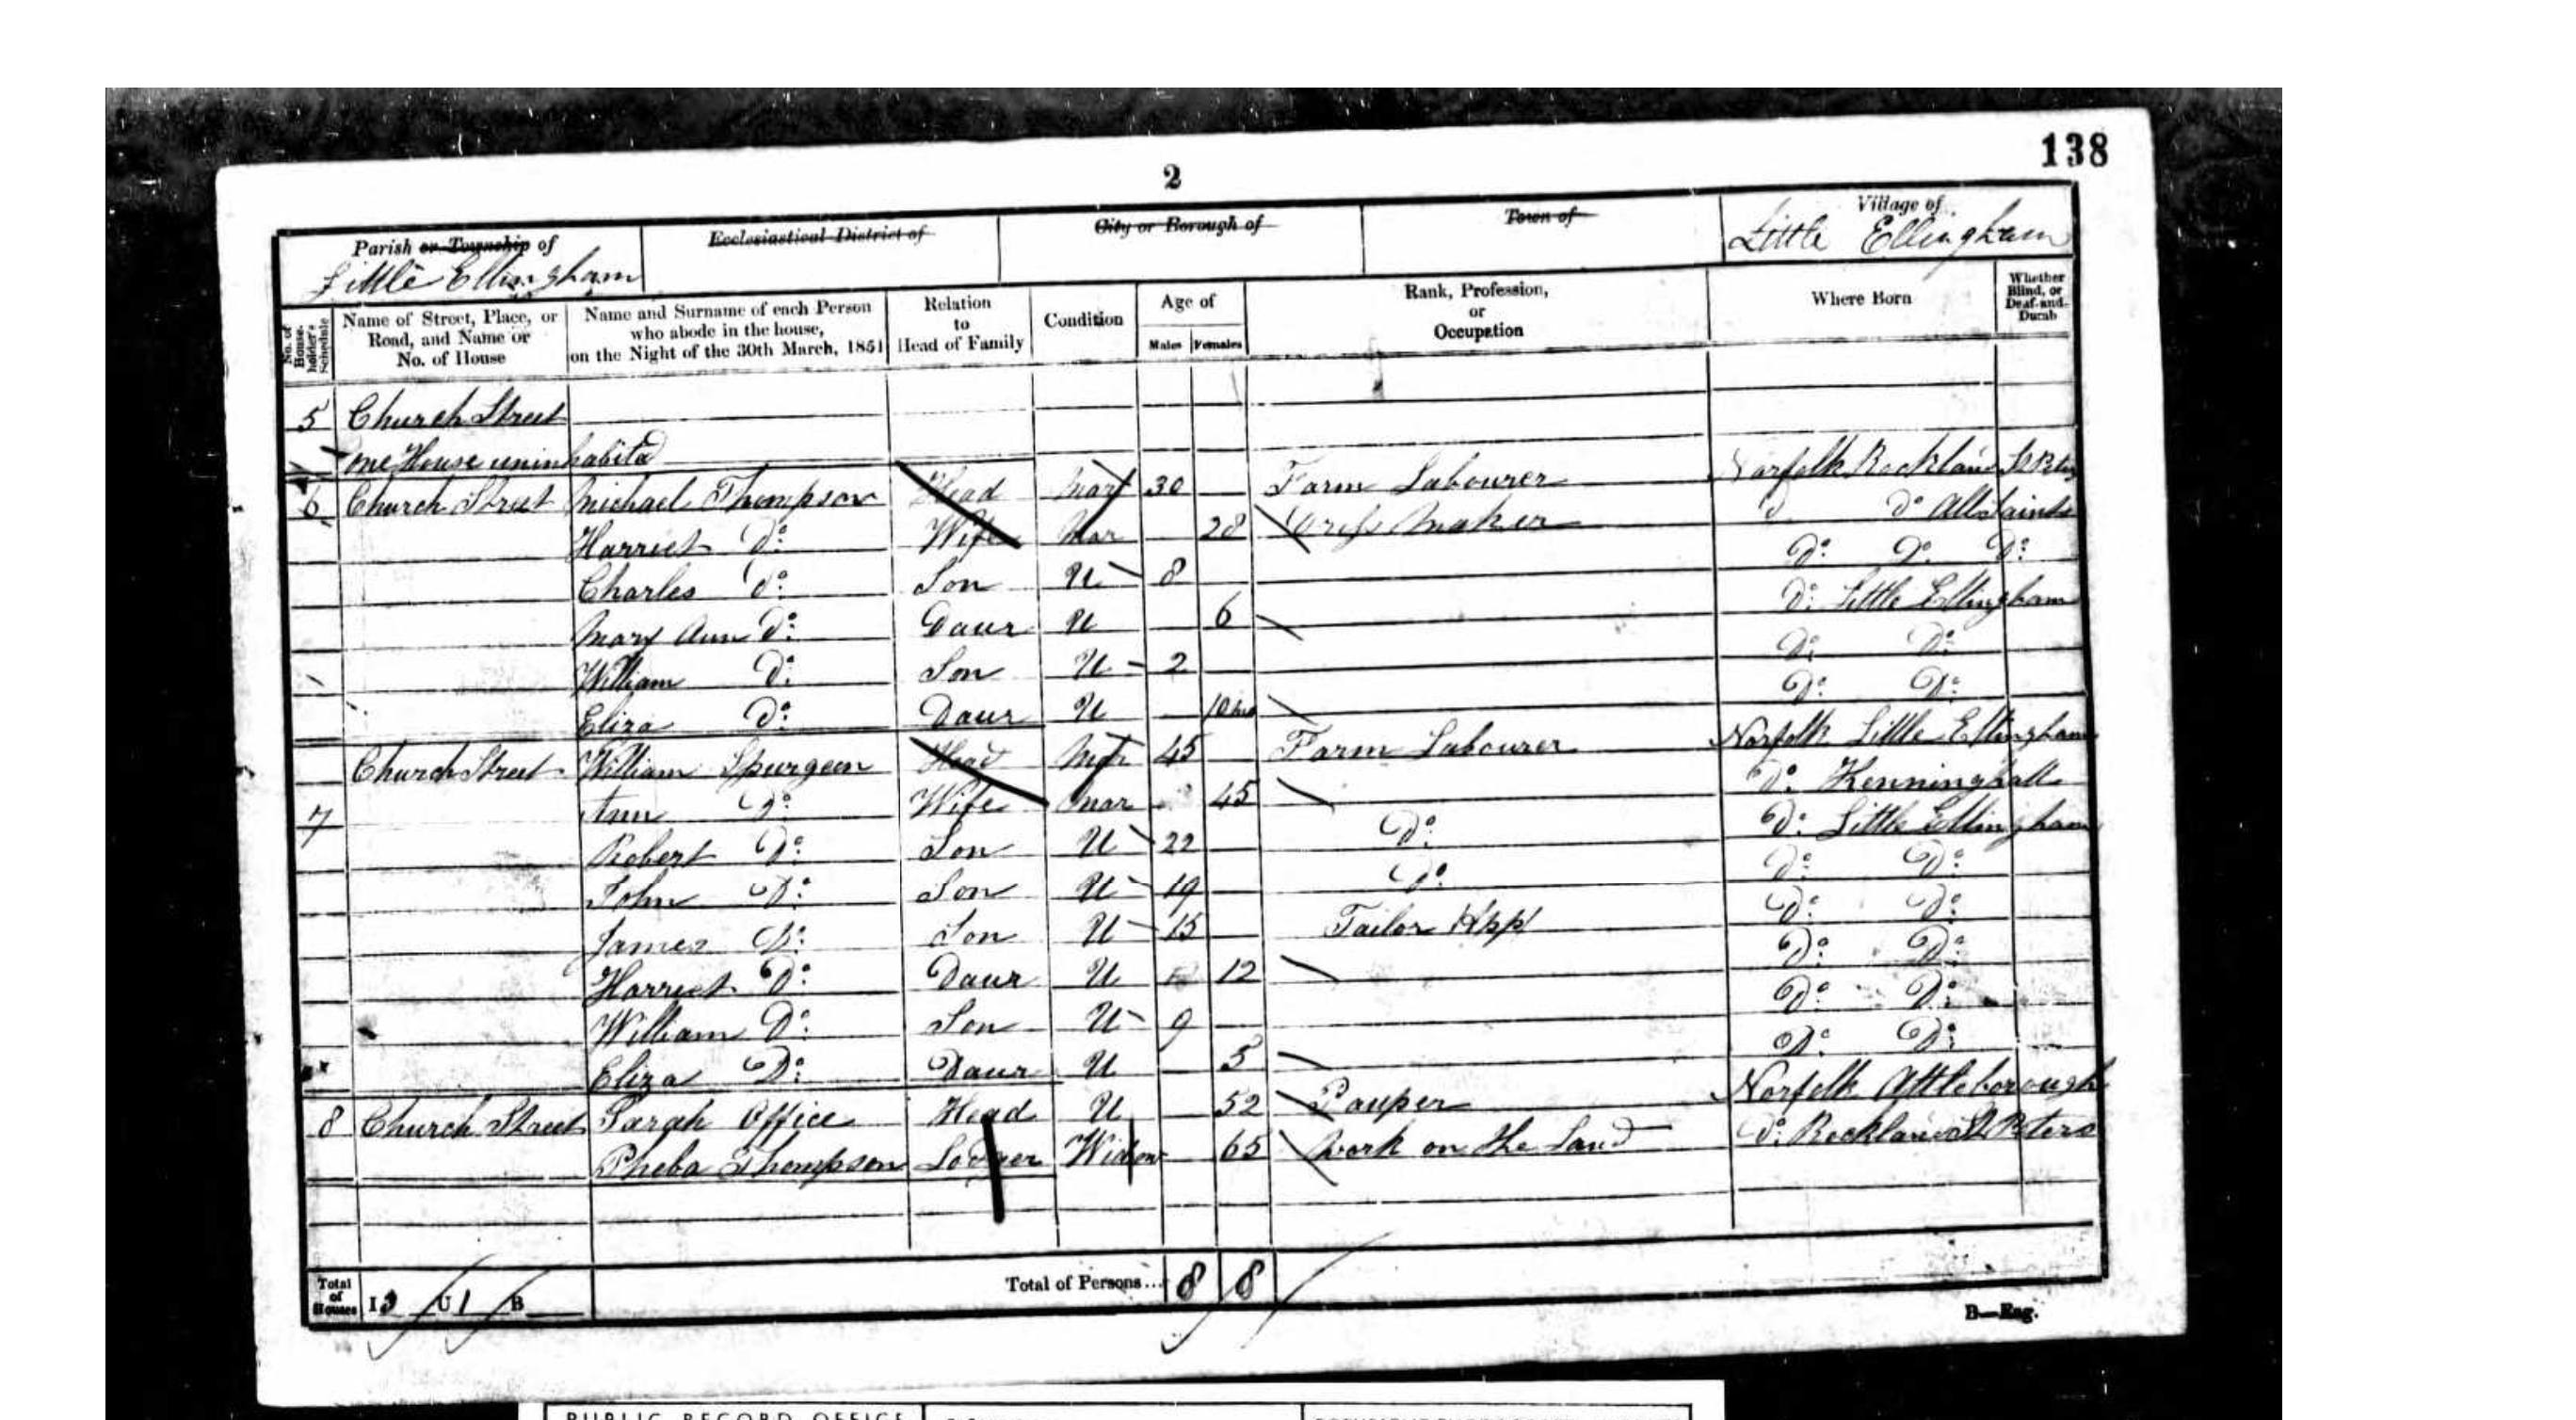 138
2
Parish or Township of
Little Ellingham
Ecclesiastical District of
City or Borough of
Town of
Village of
Little Ellingham
No. of House-holder's Schedule
Name of Street, Place, or Road, and Name or No. of House
Name and Surname of each Person who abode in the house, on the Night of the 30th March, 1851
Relation to Head of Family
Condition
Age of
Males Females
Rank, Profession, or Occupation
Where Born
Whether Blind, or Deaf-and-Dumb
5 Church Street
one House uninhabitd
6 Church Street Michael Thompson Head Mar 30 Farm Labourer Norfolk Rockland St Peters
Harriet Do Wife Mar 28 Dress Maker Do Do All Saints
Charles Do Son U 8 Do Do Do
Mary Ann Do Daur U 6 Do Little Ellingham
William Do Son U 2 Do Do
Eliza Do Daur U 10 mo Do Do
Church Street William Spurgeon Head Mar 45 Farm Labourer Norfolk Little Ellingham
7 Ann Do Wife Mar 45 Do Kenninghall
Robert Do Son U 22 Do Do Little Ellingham
John Do Son U 19 Do Do Do
James Do Son U 15 Tailor App Do Do
Harriet Do Daur U 12 Do Do
William Do Son U 9 Do Do
Eliza Do Daur U 5 Do Do
8 Church Street Sarah Office Head U 52 Pauper Norfolk Attleborough
Pheba Thompson Lodger Widow 65 Work on the Land Do Rockland St Peters
Total of Houses I 3 U 1 B
Total of Persons... 8 8
B—Eng.
PUBLIC RECORD OFFICE